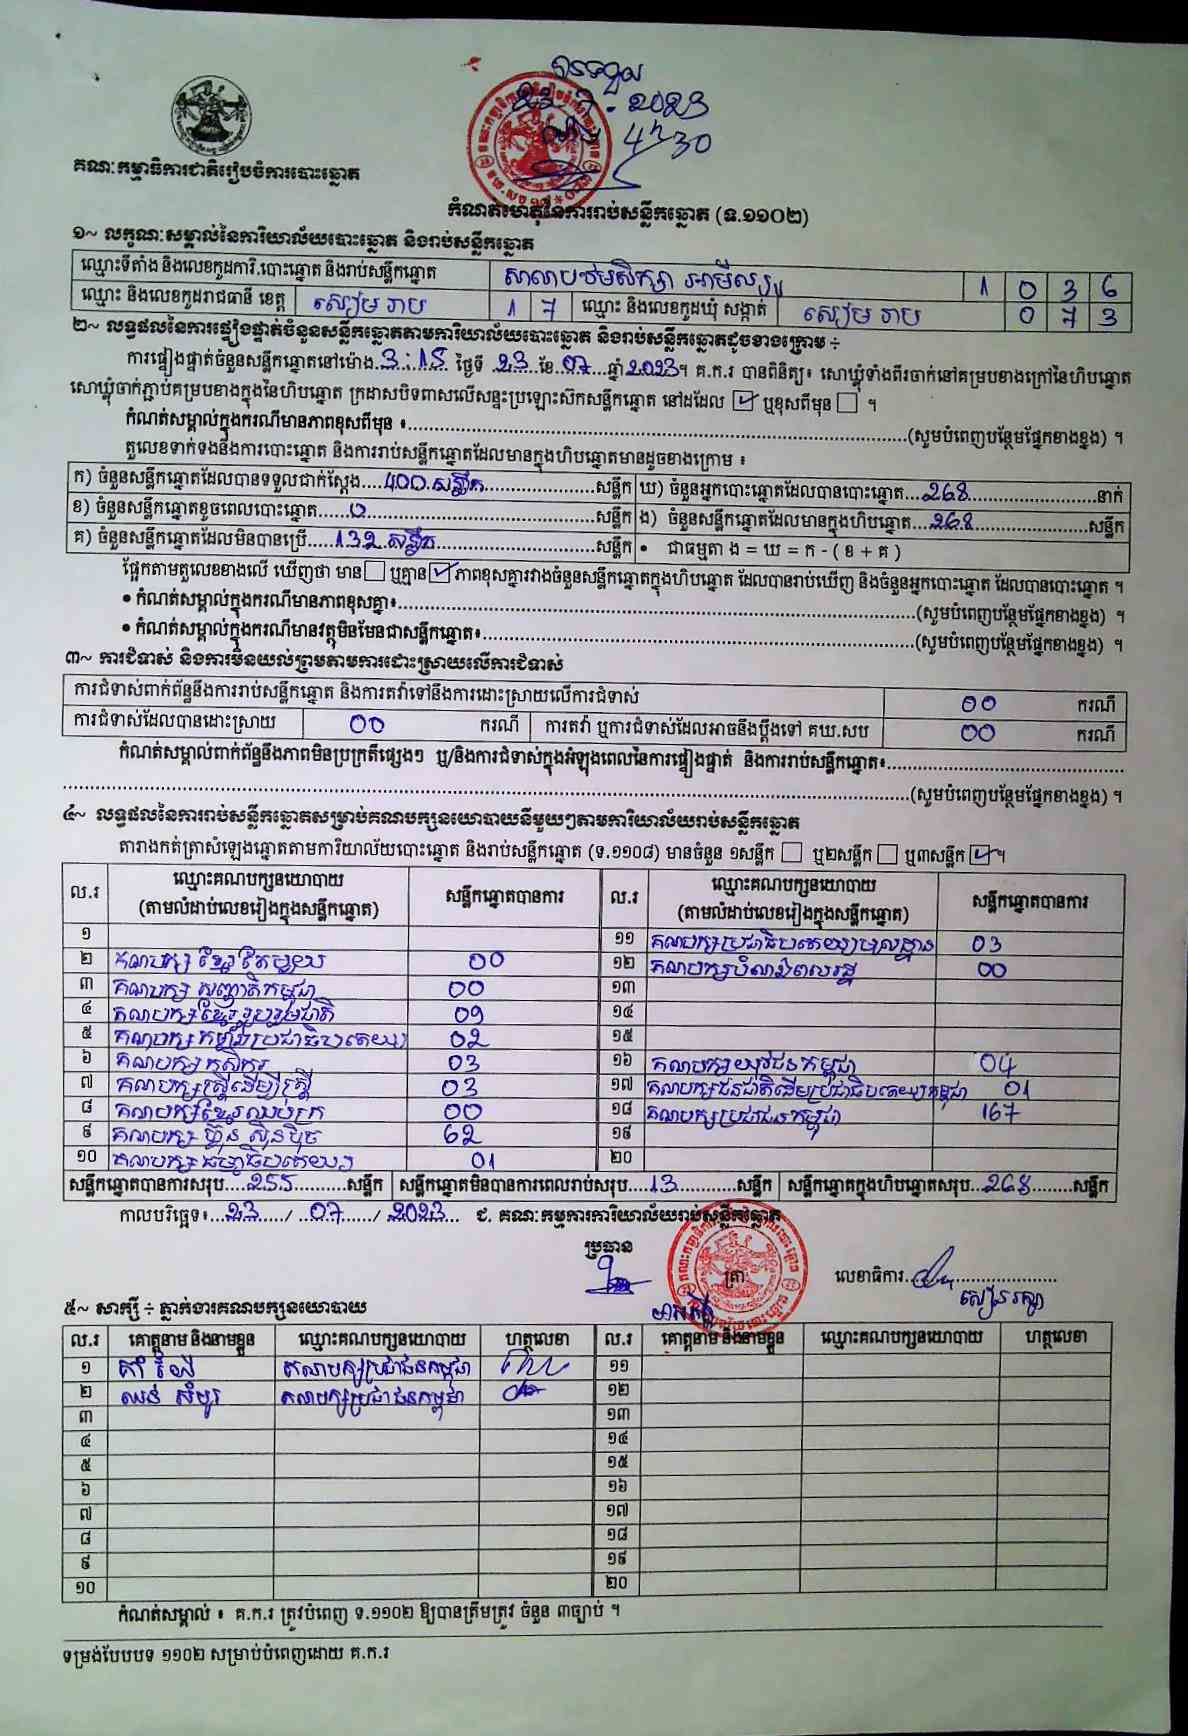 បានទទួល
23. 7. 2023
ម៉ោង 4h30
គណៈកម្មាធិការជាតិរៀបចំការបោះឆ្នោត
កំណត់ហេតុនៃការរាប់សន្លឹកឆ្នោត (ទ.១១០២)
១~ លក្ខណៈសម្គាល់នៃការិយាល័យបោះឆ្នោត និងរាប់សន្លឹកឆ្នោត
ឈ្មោះទីតាំង និងលេខកូដការិ.បោះឆ្នោត និងរាប់សន្លឹកឆ្នោត សាលាបឋមសិក្សា 1 0 3 6
ឈ្មោះ និងលេខកូដរាជធានី ខេត្ត សៀមរាប 1 7 ឈ្មោះ និងលេខកូដឃុំ សង្កាត់ សៀមរាប 0 7 3
២~ លទ្ធផលនៃការផ្ទៀងផ្ទាត់ចំនួនសន្លឹកឆ្នោតតាមការិយាល័យបោះឆ្នោត និងរាប់សន្លឹកឆ្នោតដូចខាងក្រោម ÷
ការផ្ទៀងផ្ទាត់ចំនួនសន្លឹកឆ្នោតនៅម៉ោង 3:15 ថ្ងៃទី 23 ខែ 07 ឆ្នាំ 2023។ គ.ក.រ បានពិនិត្យ៖ សោឃ្លុំទាំងពីរចាក់នៅគម្របខាងក្រៅនៃហិបឆ្នោត
សោឃ្លុំចាក់ភ្ជាប់គម្របខាងក្នុងនៃហិបឆ្នោត ក្រដាសបិទពាសលើសន្ទះប្រឡោះស៊កសន្លឹកឆ្នោត នៅដដែល ☑ ឬខុសពីមុន ☐ ។
កំណត់សម្គាល់ក្នុងករណីមានភាពខុសពីមុន ៖ (សូមបំពេញបន្ថែមផ្នែកខាងខ្នង) ។
តួលេខទាក់ទងនឹងការបោះឆ្នោត និងការរាប់សន្លឹកឆ្នោតដែលមានក្នុងហិបឆ្នោតមានដូចខាងក្រោម ៖
ក) ចំនួនសន្លឹកឆ្នោតដែលបានទទួលជាក់ស្តែង 400 សន្លឹក សន្លឹក ឃ) ចំនួនអ្នកបោះឆ្នោតដែលបានបោះឆ្នោត 268 នាក់
ខ) ចំនួនសន្លឹកឆ្នោតខូចពេលបោះឆ្នោត 0 សន្លឹក ង) ចំនួនសន្លឹកឆ្នោតដែលមានក្នុងហិបឆ្នោត 268 សន្លឹក
គ) ចំនួនសន្លឹកឆ្នោតដែលមិនបានប្រើ 132 សន្លឹក សន្លឹក • ជាធម្មតា ង = ឃ = ក - ( ខ + គ )
ផ្អែកតាមតួលេខខាងលើ ឃើញថា មាន ☐ ឬគ្មាន ☑ ភាពខុសគ្នារវាងចំនួនសន្លឹកឆ្នោតក្នុងហិបឆ្នោត ដែលបានរាប់ឃើញ និងចំនួនអ្នកបោះឆ្នោត ដែលបានបោះឆ្នោត ។
• កំណត់សម្គាល់ក្នុងករណីមានភាពខុសគ្នា៖ (សូមបំពេញបន្ថែមផ្នែកខាងខ្នង) ។
• កំណត់សម្គាល់ក្នុងករណីមានវត្ថុមិនមែនជាសន្លឹកឆ្នោត៖ (សូមបំពេញបន្ថែមផ្នែកខាងខ្នង) ។
៣~ ការជំទាស់ និងការមិនយល់ព្រមតាមការដោះស្រាយលើការជំទាស់
ការជំទាស់ពាក់ព័ន្ធនឹងការរាប់សន្លឹកឆ្នោត និងការតវ៉ាទៅនឹងការដោះស្រាយលើការជំទាស់ 00 ករណី
ការជំទាស់ដែលបានដោះស្រាយ 00 ករណី ការតវ៉ា ឬការជំទាស់ដែលអាចនឹងប្តឹងទៅ គឃ.សប 00 ករណី
កំណត់សម្គាល់ពាក់ព័ន្ធនឹងភាពមិនប្រក្រតីផ្សេងៗ ឬ/និងការជំទាស់ក្នុងអំឡុងពេលនៃការផ្ទៀងផ្ទាត់ និងការរាប់សន្លឹកឆ្នោត៖
(សូមបំពេញបន្ថែមផ្នែកខាងខ្នង) ។
៤~ លទ្ធផលនៃការរាប់សន្លឹកឆ្នោតសម្រាប់គណបក្សនយោបាយនីមួយៗតាមការិយាល័យរាប់សន្លឹកឆ្នោត
តារាងកត់ត្រាសំឡេងឆ្នោតតាមការិយាល័យបោះឆ្នោត និងរាប់សន្លឹកឆ្នោត (ទ.១១០៨) មានចំនួន ១សន្លឹក ☐ ឬ២សន្លឹក ☐ ឬ៣សន្លឹក ☑។
ល.រ ឈ្មោះគណបក្សនយោបាយ (តាមលំដាប់លេខរៀងក្នុងសន្លឹកឆ្នោត) សន្លឹកឆ្នោតបានការ ល.រ ឈ្មោះគណបក្សនយោបាយ (តាមលំដាប់លេខរៀងក្នុងសន្លឹកឆ្នោត) សន្លឹកឆ្នោតបានការ
១ ១១ គណបក្សប្រជាធិបតេយ្យមូលដ្ឋាន 03
២ គណបក្ស ខ្មែរតែមួយ 00 ១២ គណបក្សបំណងពលរដ្ឋ 00
៣ គណបក្ស សញ្ជាតិកម្ពុជា 00 ១៣
៤ គណបក្សខ្មែររួបរួមជាតិ 09 ១៤
៥ គណបក្សកម្លាំងប្រជាធិបតេយ្យ 02 ១៥
៦ គណបក្សកសិករ 03 ១៦ គណបក្សយុវជនកម្ពុជា 04
៧ គណបក្សស្ត្រីដើម្បីស្ត្រី 03 ១៧ គណបក្សជនជាតិដើមប្រជាធិបតេយ្យកម្ពុជា 01
៨ គណបក្សខ្មែរឈប់ក្រ 00 ១៨ គណបក្សប្រជាជនកម្ពុជា 167
៩ គណបក្ស ហ៊្វុន ស៊ិនប៉ិច 62 ១៩
១០ គណបក្សធម្មាធិបតេយ្យ 01 ២០
សន្លឹកឆ្នោតបានការសរុប 255 សន្លឹក សន្លឹកឆ្នោតមិនបានការពេលរាប់សរុប 13 សន្លឹក សន្លឹកឆ្នោតក្នុងហិបឆ្នោតសរុប 268 សន្លឹក
កាលបរិច្ឆេទ៖ 23 / 07 / 2023 ជ. គណៈកម្មការការិយាល័យរាប់សន្លឹកឆ្នោត
ប្រធាន ត្រា លេខាធិការ
៥~ សាក្សី ÷ ភ្នាក់ងារគណបក្សនយោបាយ
ល.រ គោត្តនាម និងនាមខ្លួន ឈ្មោះគណបក្សនយោបាយ ហត្ថលេខា ល.រ គោត្តនាម និងនាមខ្លួន ឈ្មោះគណបក្សនយោបាយ ហត្ថលេខា
១ គណបក្សប្រជាជនកម្ពុជា ១១
២ គណបក្សប្រជាជនកម្ពុជា ១២
៣ ១៣
៤ ១៤
៥ ១៥
៦ ១៦
៧ ១៧
៨ ១៨
៩ ១៩
១០ ២០
កំណត់សម្គាល់ ៖ គ.ក.រ ត្រូវបំពេញ ទ.១១០២ ឱ្យបានត្រឹមត្រូវ ចំនួន ៣ច្បាប់ ។
ទម្រង់បែបបទ ១១០២ សម្រាប់បំពេញដោយ គ.ក.រ